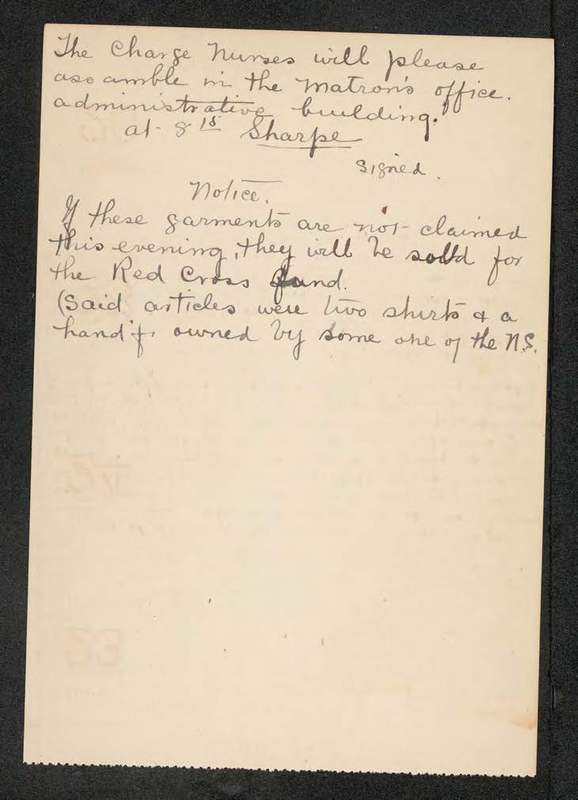 The Charge Nurses will please
assamble in the Matron's office.
administrative building.
at 8 15 Sharpe
signed.
Notice.
If these garments are not claimed
this evening, they will be sold for
the Red Cross fund.
(Said articles were two shirts & a
hand'f. owned by some one of the N.S.